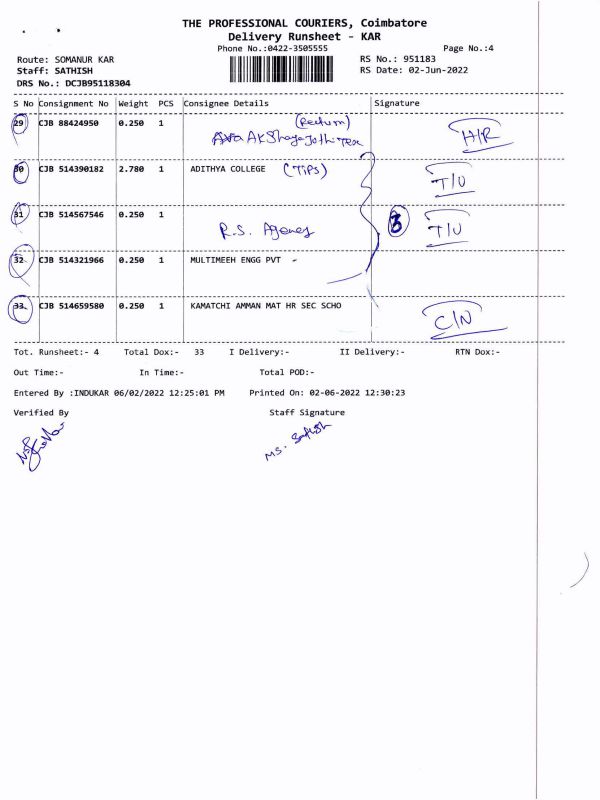 THE PROFESSIONAL COURIERS, Coimbatore
Delivery Runsheet - KAR
Phone No.:0422-3505555 Page No.:4
Route: SOMANUR KAR RS No.: 951183
Staff: SATHISH RS Date: 02-Jun-2022
DRS No.: DCJB95118304
S No Consignment No Weight PCS Consignee Details Signature
29 CJB 88424950 0.250 1 (Return) H/R
AkshayaJothiTex
30 CJB 514390182 2.780 1 ADITHYA COLLEGE (TIPS) T/U
31 CJB 514567546 0.250 1 R.S. Agency 3 T/U
32 CJB 514321966 0.250 1 MULTIMEEH ENGG PVT -
33 CJB 514659580 0.250 1 KAMATCHI AMMAN MAT HR SEC SCHO C/N
Tot. Runsheet:- 4 Total Dox:- 33 I Delivery:- II Delivery:- RTN Dox:-
Out Time:- In Time:- Total POD:-
Entered By :INDUKAR 06/02/2022 12:25:01 PM Printed On: 02-06-2022 12:30:23
Verified By Staff Signature
MS. Sathish